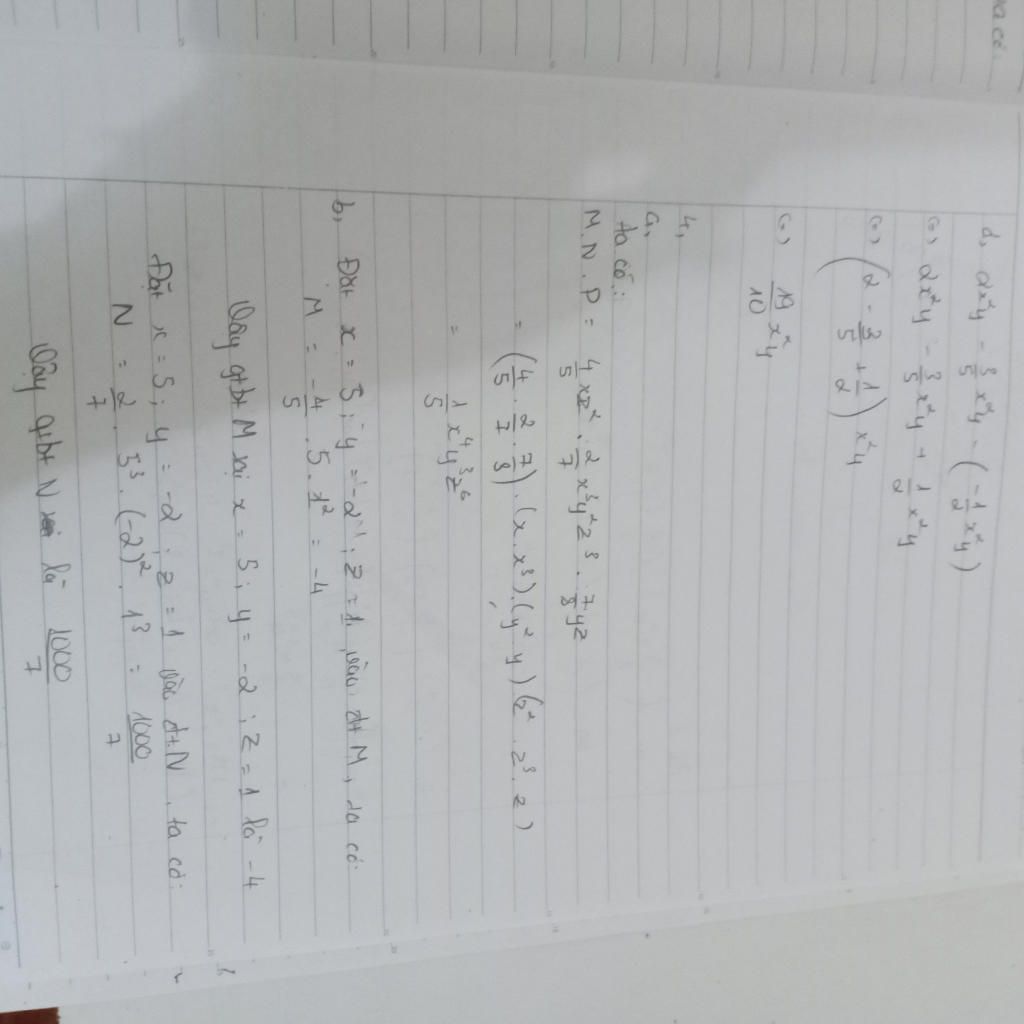 ta có:
d, 2x²y - 3/5 x²y - (-1/2 x²y)
(=) 2x²y - 3/5 x²y + 1/2 x²y
(=) (2 - 3/5 + 1/2) x²y
(=) 19/10 x²y
4,
a,
ta có:
M.N.P = 4/5 xz² . 2/7 x³y²z³ . 7/8 yz
= (4/5 . 2/7 . 7/8) . (x.x³).(y².y)(z².z³.z)
= 1/5 x⁴y³z⁶
b, Đặt x = 5; y = -2; z = 1 vào đt M, ta có:
M = -4/5 . 5 . 1² = -4
Vậy gtbt M tại x = 5; y = -2; z = 1 là -4
Đặt x = 5; y = -2; z = 1 vào đt N, ta có:
N = 2/7 . 5³ . (-2)² . 1³ = 1000/7
Vậy gtbt N là 1000/7